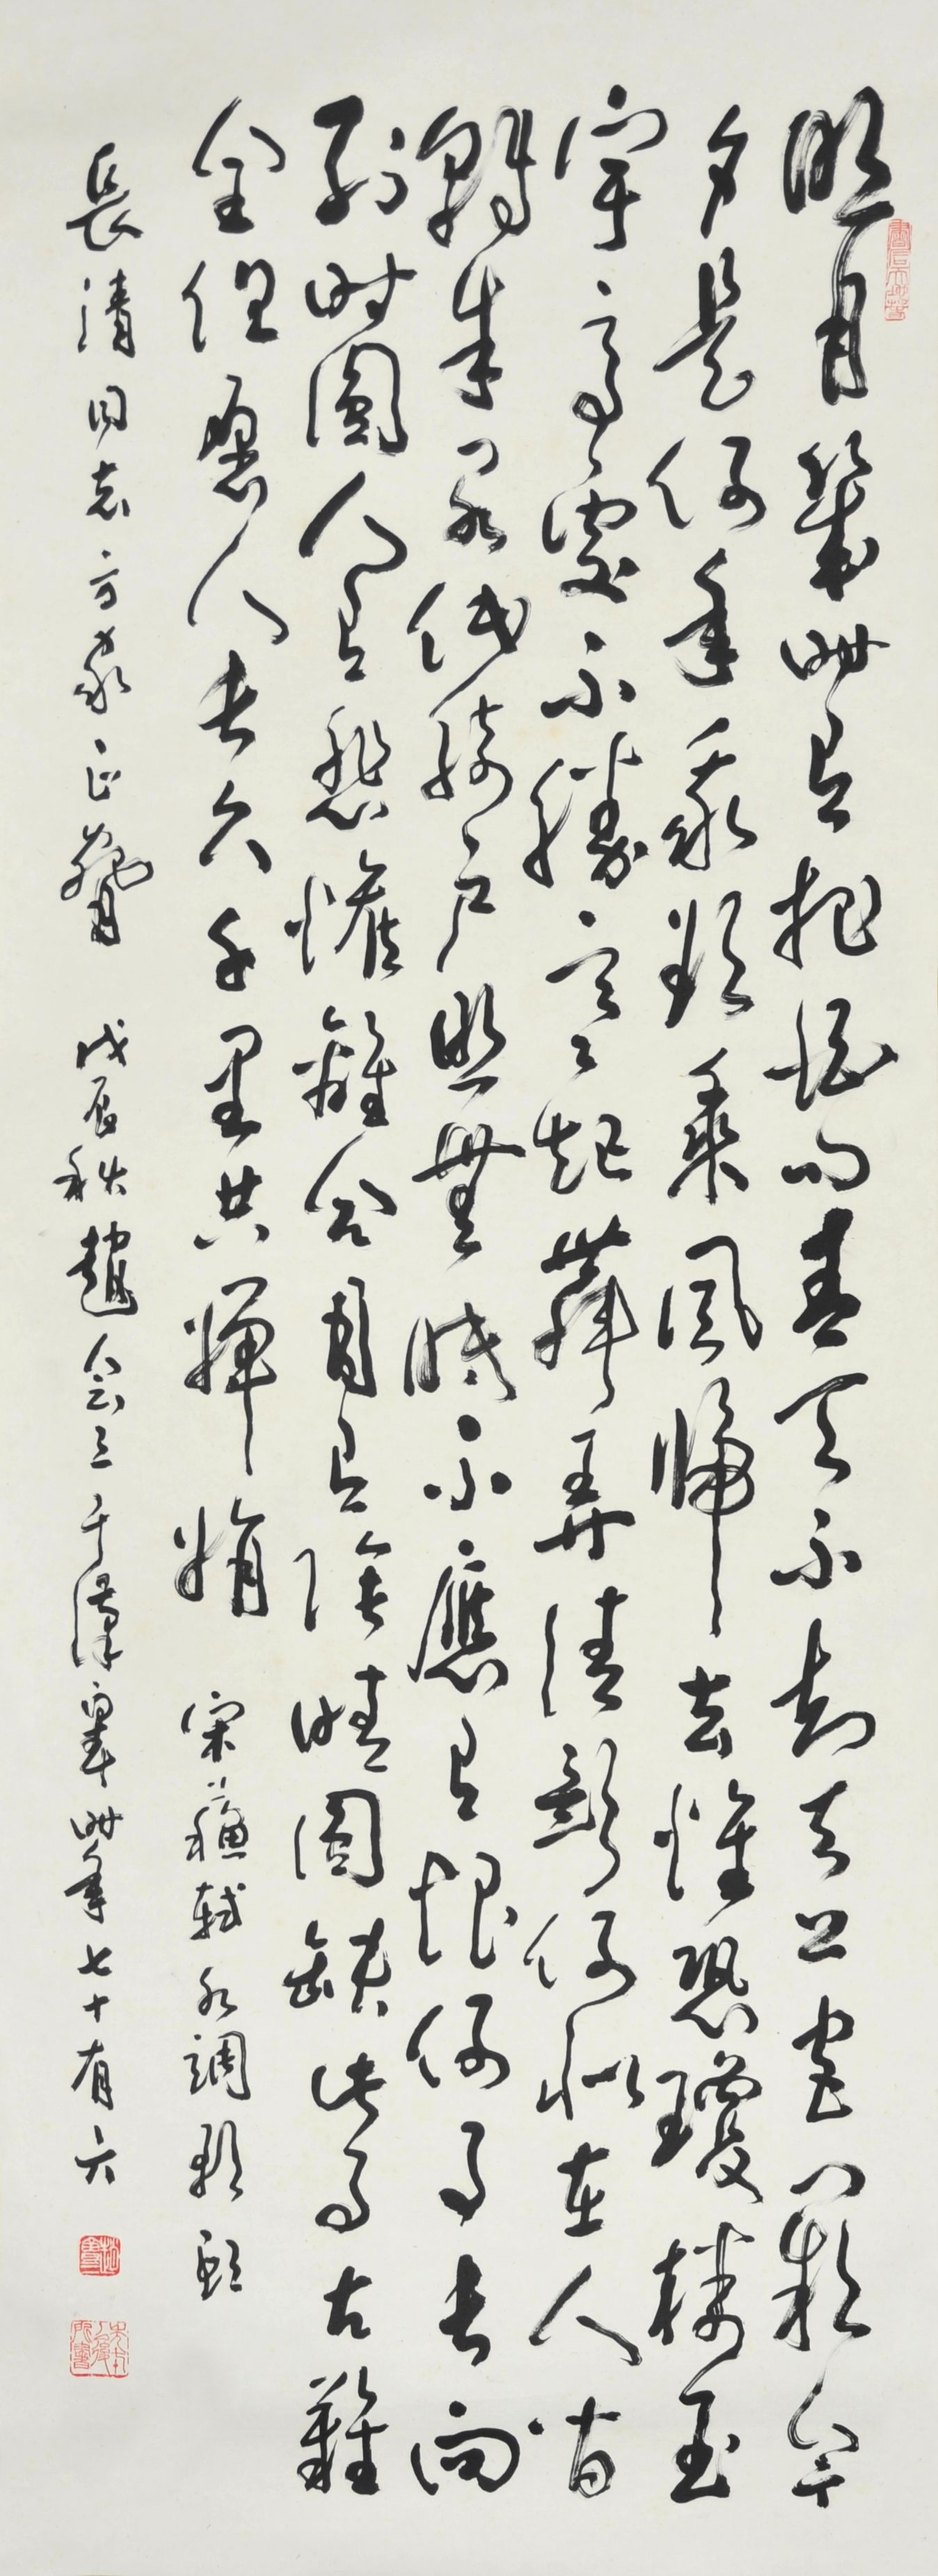 明月幾時有把酒問青天不知天上宮闕今
夕是何年我欲乘風歸去惟恐瓊樓玉
宇高處不勝寒起舞弄清影何似在人間
轉朱閣低綺戶照無眠不應有恨何事長向
別時圓人有悲歡離合月有陰晴圓缺此事古難
全但願人長久千里共嬋娟 宋蘇軾水調歌頭
長清同志方家正 戊辰秋趙會三于漢皋時年七十有六